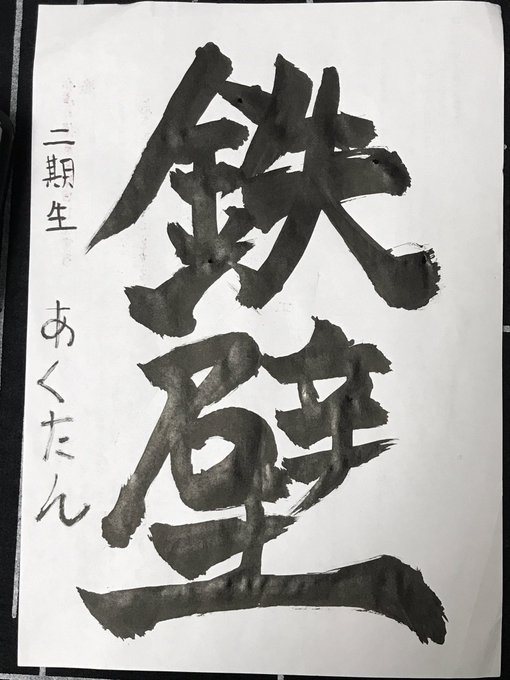 鉄壁
二期生 あくたん